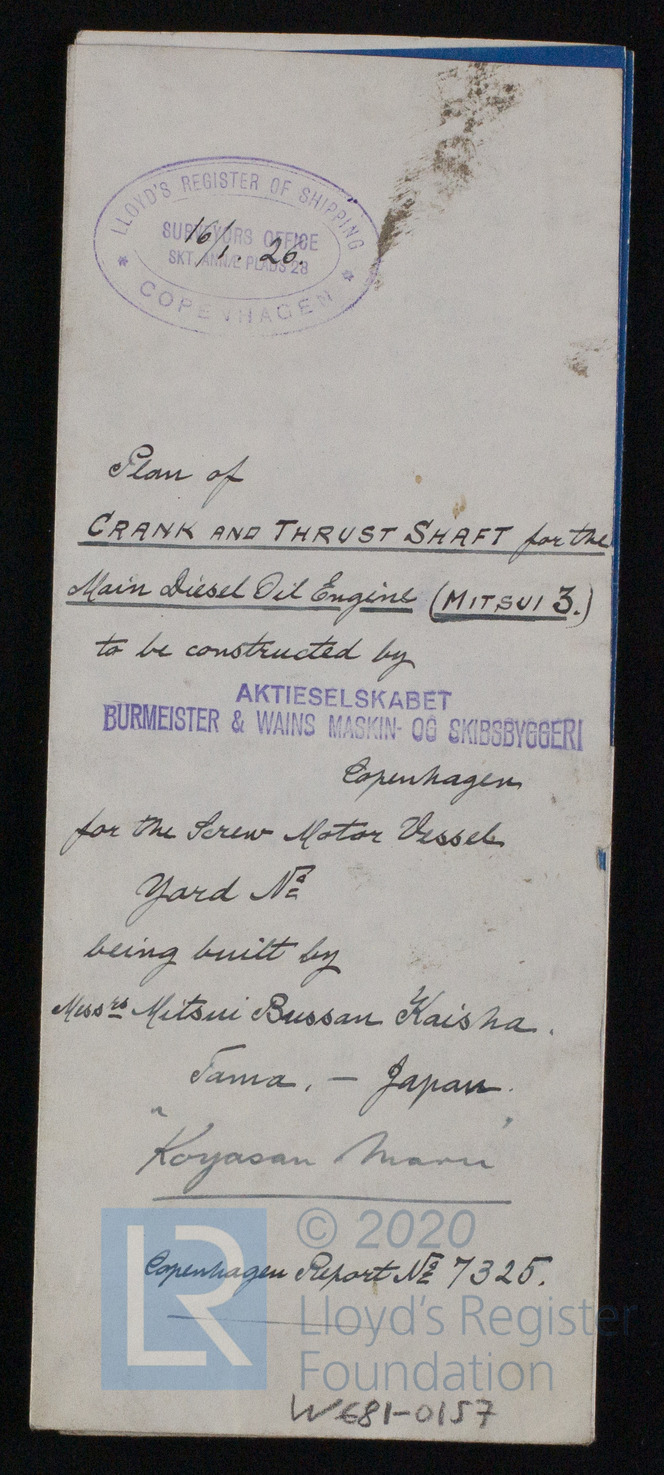 LLOYD'S REGISTER OF SHIPPING
SURVEYORS OFFICE
16/1. 26.
SKT. ANNÆ PLADS 28
COPENHAGEN
Plan of
CRANK AND THRUST SHAFT for the
Main Diesel Oil Engine (MITSUI 3.)
to be constructed by
AKTIESELSKABET
BURMEISTER & WAINS MASKIN- OG SKIBSBYGGERI
Copenhagen
for the Screw Motor Vessel
Yard No
being built by
Messrs Mitsui Bussan Kaisha.
Tama, — Japan.
"Koyasan Maru"
LR
© 2020
Copenhagen Report No 7325.
Lloyd's Register
Foundation
W681-0157